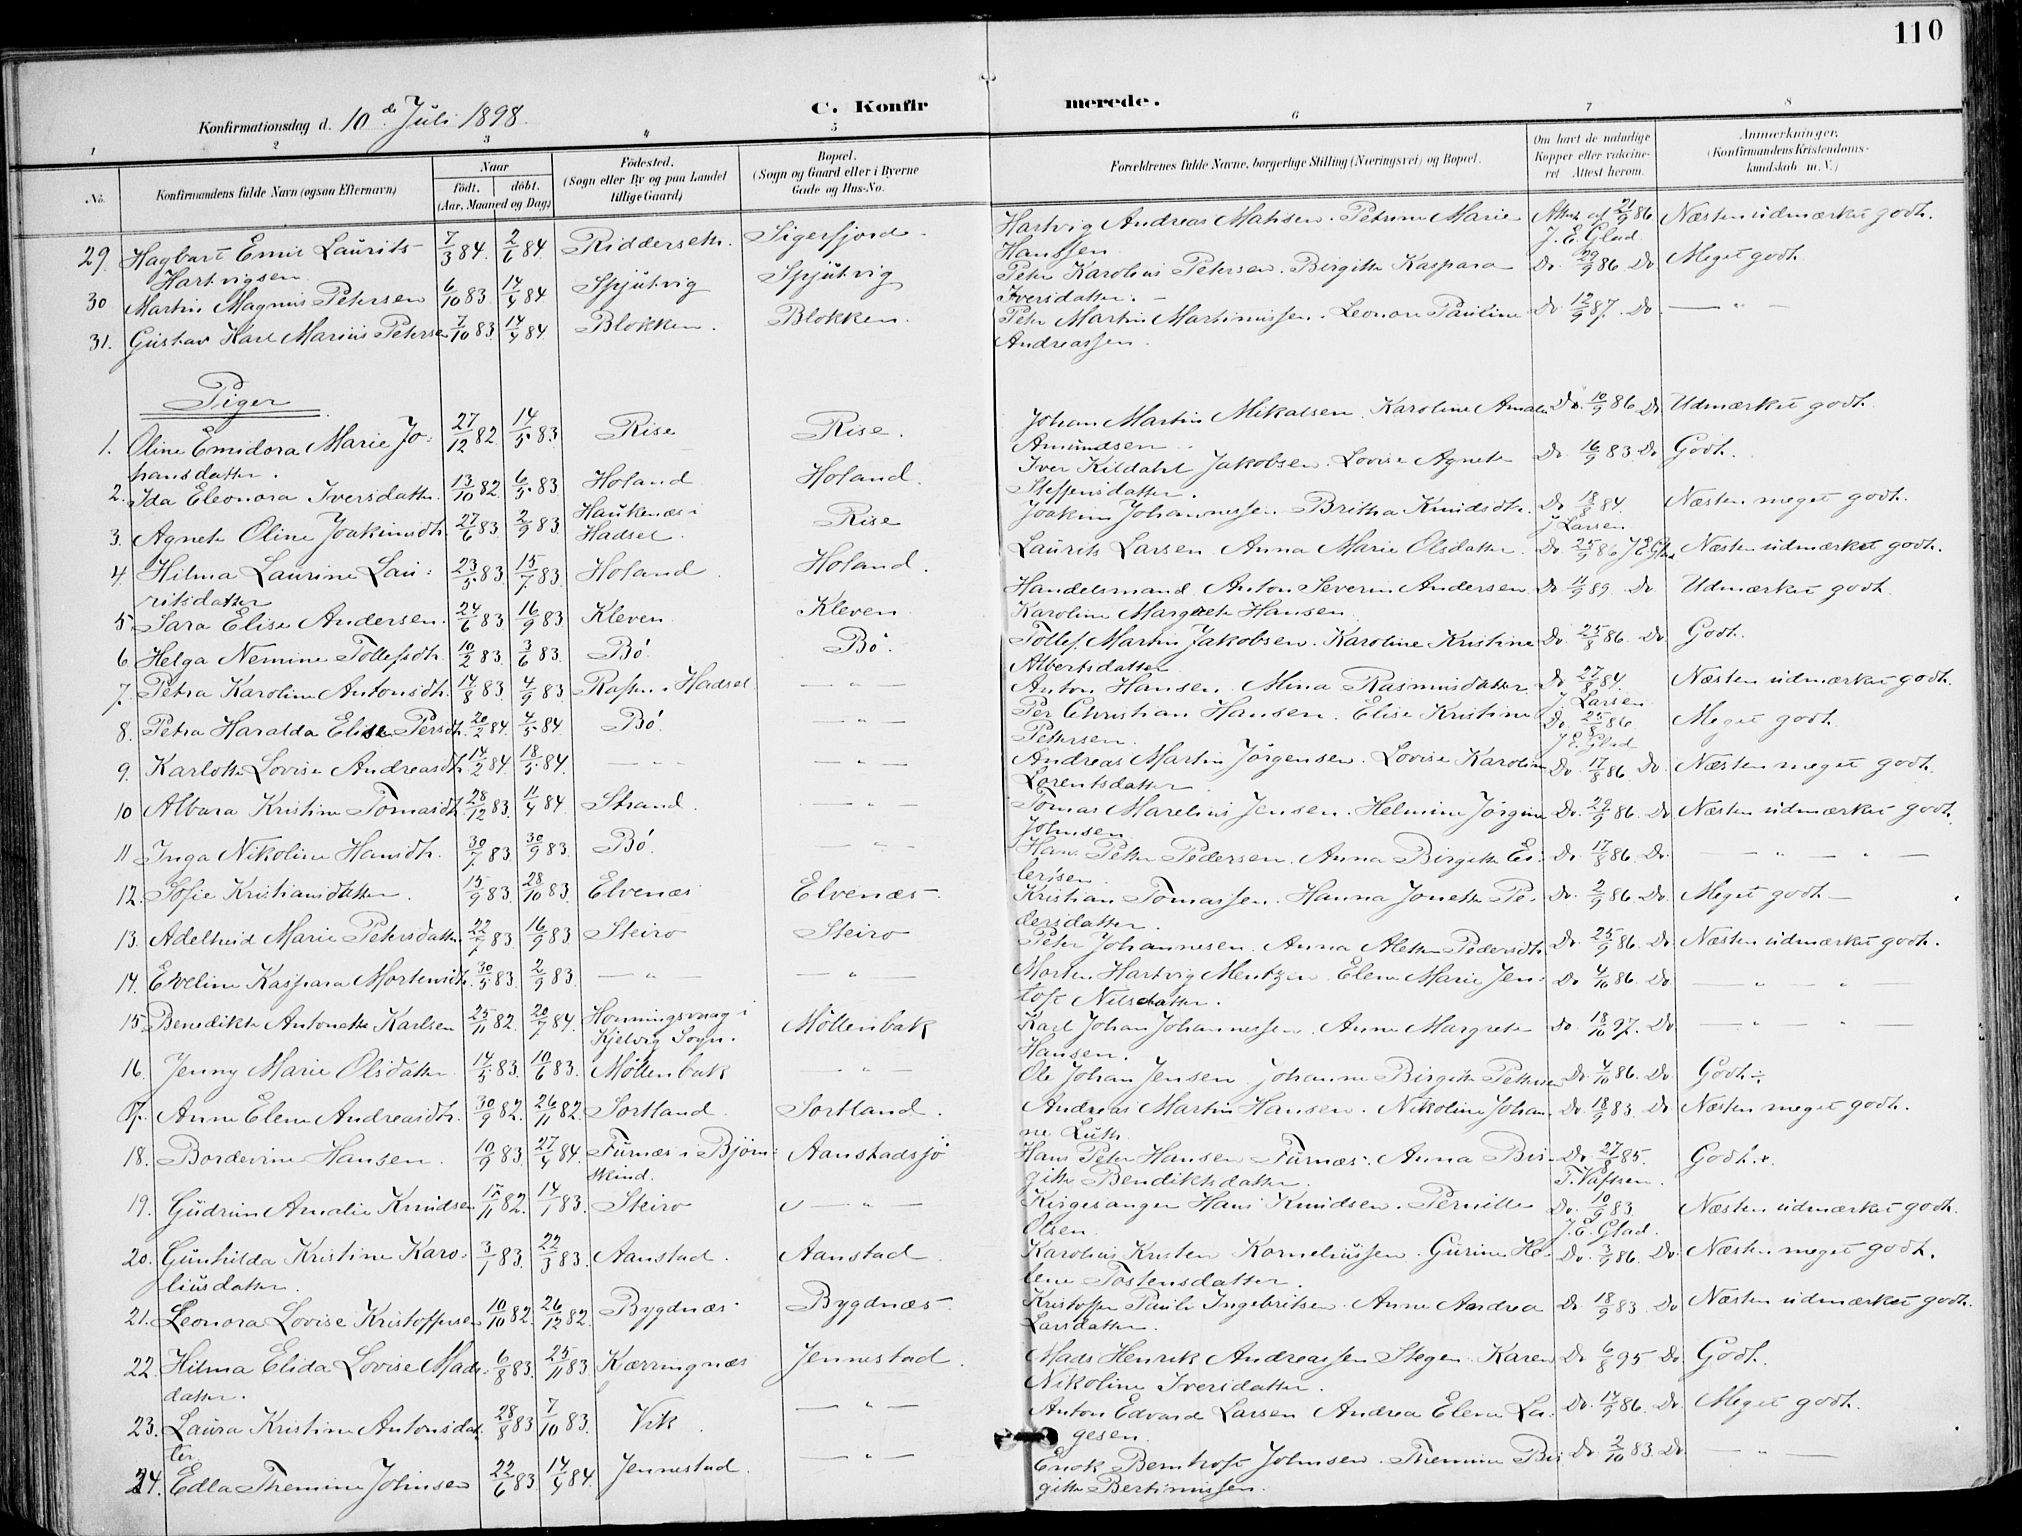 110
C. Konfirmerede.
Konfirmationsdag d. 10de Juli 1898.
1 2 3 4 5 6 7 8
No. Konfirmandens fulde Navn (ogsaa Efternavn) Naar født. døbt. (Aar, Maaned og Dag) Fødested. (Sogn eller By og paa Landet tillige Gaard) Bopæl. (Sogn og Gaard eller i Byerne Gade og Hus-No. Forældrenes fulde Navne, borgerlige Stilling (Næringsvei) og Bopæl. Om havt de naturlige Kopper eller vakcineret Attest herom. Anmærkninger. (Konfirmandens Kristendomskundskab m. V.)
29. Hagbart Emil Laurits 7/3 84. 2/6 84. Sigerfjord. Hartvig Andreas Petrine Marie Attest af 21/9 86 Næsten udmærket godt.
Hartvigsen Hanssen J. E. Glad.
30 Martin Magnus Petersen 6/10 83. 14/4 84. Spjutvig Spjutvig Peter Karolius Petersen. Birgitte Kaspara Do. 29/9 86. Do Meget godt
Iversdatter.
31. Gustav Karl Marius Petersen 7/10 83 14/4 84. Blokken. Blokken. Peter Martin Martinussen. Leonore Pauline Do 12/9 87. Do — " —
Andreassen.
Piger
1. Oline Emidora Marie Jo: 27/12 82 14/5 83 Rise Rise. Johan Martin Mikalsen. Karoline Do. 10/9 86 Do. Udmærket godt.
hansdatter. Amundsen
2. Ida Eleonora Iversdatter. 13/10 82. 6/5 83. Holand Holand. Iver Kildahl Jakobsen. Lovise Agnete Do. 16/9 83 Do Godt.
Steffensdatter.
3. Agnete Oline Joakimsdtr. 27/6 83. 2/9 83. Haukenæs i Rise Joakim Johannessen. Britha Knudsdtr. Do 18/8 84. Næsten meget godt.
Hadsel. J Larsen
4. Hilma Laurine Lau: 23/5 83. 15/7 83. Holand Holand. Laurits Larsen. Anna Marie Olsdatter. Do. 25/9 86 Næsten udmærket godt.
ritsdatter
5 Sara Elise Andersen. 24/6 83 16/9 83 Kleven. Kleven Handelsmand Anton Severin Andersen Do Do Udmærket godt.
Karoline Margrete Hansen.
6 Helga Nemine Tollefsdtr. 10/2 83. 3/6 83. Bø. Bø. Tollef Martin Jakobsen. Karoline Kristine Do. 25/8 86. Do Godt.
Albertsdatter
7. Petra Karoline Antonsdtr. 14/8 83. 4/9 83. i Hadsel — " — Anton Hansen. Mina Rasmusdatter Do 27/8 84. Næsten udmærket godt.
J. Larsen
8. Petra Haralda Elise Persdtr. 20/2 84. 4/5 84. Bø. — " — Per Christian Hansen. Elise Kristine Do. 25/8 86 Meget godt.
Pettersen. J. E. Glad
9. Karlotte Lovise Andreasdtr. 14/2 84. 18/5 84. — " — — " — Andreas Martin Jørgensen. Lovise Karoline Do. 17/8 86. Do. Næsten meget godt.
Lorentsdatter.
10 Albara Kristine Tomasdtr. 28/12 83. 11/4 84. Strand. — " — Tomas Marelius Jensen. Helmine Jørgine Do. 29/9 86. Do Næsten udmærket godt.
Johnsen
11 Inga Nikoline Hansdtr. 30/7 83. 30/9 83. Bø. — " — Hans Petter Pedersen. Anna Birgitte Ei: Do. 17/8 86. Do. — " — " —
lersen.
12. Sofie Kristiansdatter. 15/9 83. 28/10 83. Elvenæs Elvenæs. Kristian Tomassen. Hanna Jonette Pe: Do. 2/9 86. Do. Meget godt
dersdatter.
13. Adelheid Marie Petersdatter 22/7 83. 16/9 83. Steiro Steiro Peter Johannesen. Anna Alette Pedersdtr. Do. 25/9 86. Do. Næsten udmærket godt.
14. Eveline Kaspara Mortensdtr. 30/5 83. 2/9 83. — " — — " Morten Hartvig Mentzen. Elene Marie Jen: Do 4/10 86. Do. — " — " —
toft Nilsdatter.
15 Benedikte Antonette Karlsen 25/11 82. 20/7 84. Honningsvaag i Møllenbak Karl Johan Johannessen. Anne Margrete Do. 18/10 97. Do — " — " —
Kjelvig Sogn. Hansen.
16. Jenny Marie Olsdatter 14/5 83. 10/6 83. Møllenbak — " — Ole Johan Jensen. Johanne Birgitte Pettersen Do. 4/10 86. Do Godt.
17. Anne Elene Andreasdtr. 30/9 82. 26/11 82. Sortland. Sortland. Andreas Martin Hansen. Nikoline Johan Do. 18/9 83. Do Næsten meget godt.
ne Luth.
18. Bordevine Hansen. 10/9 83. 27/4 84. Furnæs i Bjørn: Aanstadsjø Hans Peter Hansen Furnæs. Anna Bir Do. 27/8 85. Godt.
skind. gitte Bendiktsdatter.
19. Gudrun Amalie Knudsen 82. 14/1 83. Steiro — " — Kirgesanger Hans Knudsen. Pernille Do. 10/9 83. Næsten udmærket godt.
Olsen J. E. Glad.
20. Gunhilda Kristine Karo: 3/1 83. 22/3 83. Aanstad. Aanstad. Karolius Kristen Korneliussen. Gurine He: Do. 3/9 86. Do. Næsten meget godt.
liusdatter. lene Tostensdatter.
21. Leonora Lovise Kristoffersen 10/10 82. 26/12 82. Bygdnæs Bygdnæs. Kristoffer Paulr Ingebritsen. Anne Andrea Do. 18/9 83. Do Næsten udmærket godt.
Larsdatter.
22. Hilma Elida Lovise Mads: 6/8 83. 25/11 83 Kærringnæs Jennestad. Mads Henrik Andreassen Stegen. Karen Do 6/8 95 Do. Godt.
datter. Nikoline Iversdatter.
23. Laura Kristine Antonsdat 28/8 83 7/10 83. Vik — " — Anton Edvard Larsen Andrea Elene La: Do. 14/9 86. Do. Meget godt.
ter gesen.
24. Edla Themine Johnsen 22/6 83. 14/4 84. Jennestad. — " — Enok Berntoft Johnsen. Themine Bir Do. 2/10 83. Do. — " —
gitte Bertinussen.